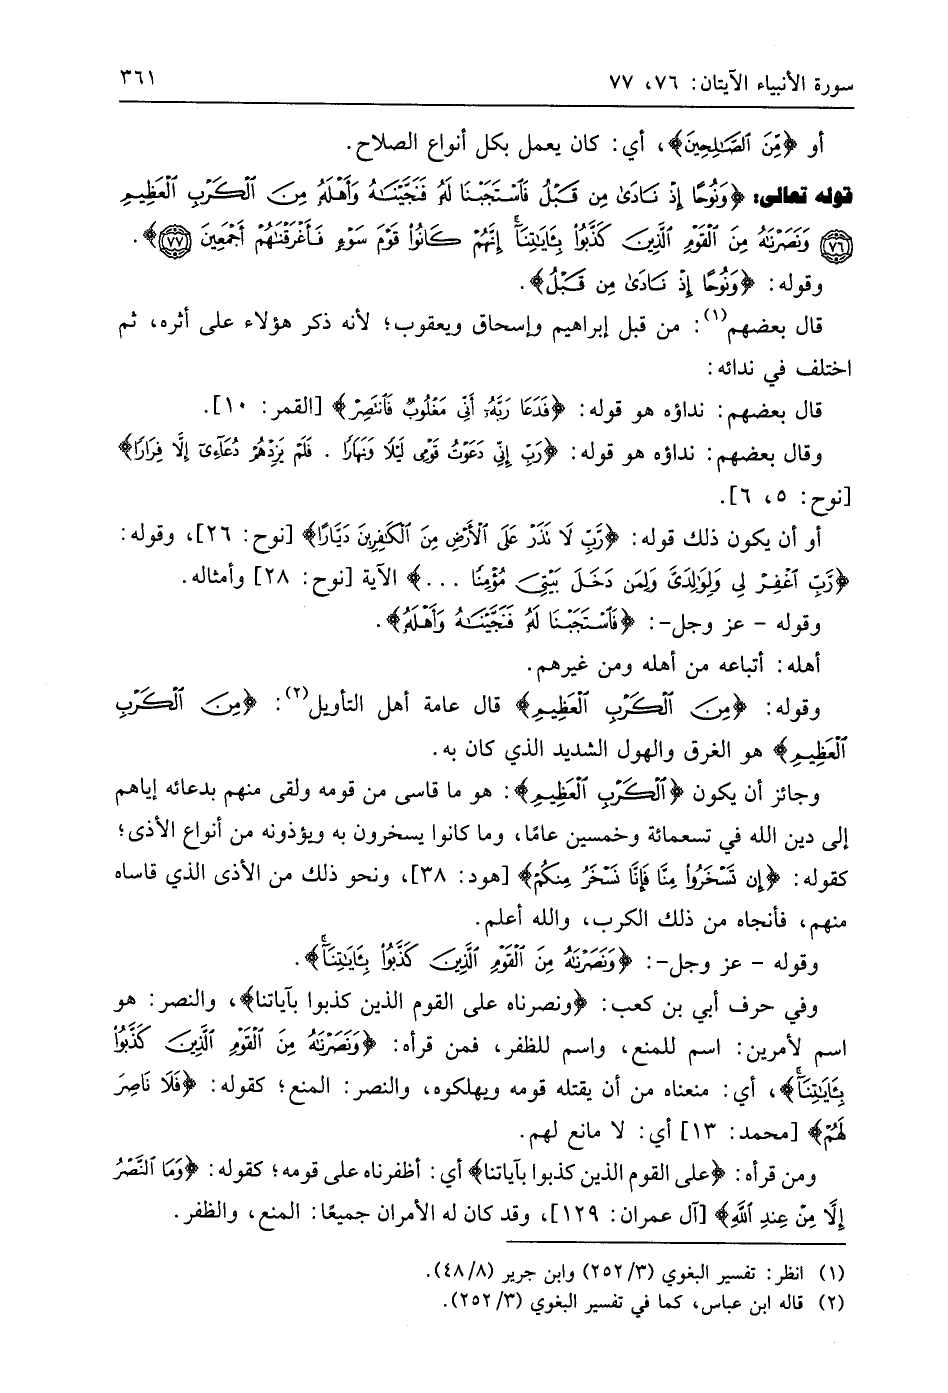 سورة الأنبياء الآيتان: ٧٦، ٧٧ ٣٦١
أو ﴿مِّنَ ٱلصَّـٰلِحِينَ﴾، أي: كان يعمل بكل أنواع الصلاح.
قوله تعالى: ﴿وَنُوحًا إِذْ نَادَىٰ مِن قَبْلُ فَٱسْتَجَبْنَا لَهُۥ فَنَجَّيْنَـٰهُ وَأَهْلَهُۥ مِنَ ٱلْكَرْبِ ٱلْعَظِيمِ
﴿٧٦﴾ وَنَصَرْنَـٰهُ مِنَ ٱلْقَوْمِ ٱلَّذِينَ كَذَّبُوا۟ بِـَٔايَـٰتِنَآ ۚ إِنَّهُمْ كَانُوا۟ قَوْمَ سَوْءٍ فَأَغْرَقْنَـٰهُمْ أَجْمَعِينَ ﴿٧٧﴾﴾.
وقوله: ﴿وَنُوحًا إِذْ نَادَىٰ مِن قَبْلُ﴾.
قال بعضهم(١): من قبل إبراهيم وإسحاق ويعقوب؛ لأنه ذكر هؤلاء على أثره، ثم
اختلف في ندائه:
قال بعضهم: نداؤه هو قوله: ﴿فَدَعَا رَبَّهُۥٓ أَنِّى مَغْلُوبٌ فَٱنتَصِرْ﴾ [القمر: ١٠].
وقال بعضهم: نداؤه هو قوله: ﴿رَبِّ إِنِّى دَعَوْتُ قَوْمِى لَيْلًا وَنَهَارًا . فَلَمْ يَزِدْهُمْ دُعَآءِىٓ إِلَّا فِرَارًا﴾
[نوح: ٥، ٦].
أو أن يكون ذلك قوله: ﴿رَّبِّ لَا تَذَرْ عَلَى ٱلْأَرْضِ مِنَ ٱلْكَـٰفِرِينَ دَيَّارًا﴾ [نوح: ٢٦]، وقوله:
﴿رَّبِّ ٱغْفِرْ لِى وَلِوَٰلِدَىَّ وَلِمَن دَخَلَ بَيْتِىَ مُؤْمِنًا ...﴾ الآية [نوح: ٢٨] وأمثاله.
وقوله - عز وجل-: ﴿فَٱسْتَجَبْنَا لَهُۥ فَنَجَّيْنَـٰهُ وَأَهْلَهُۥ﴾.
أهله: أتباعه من أهله ومن غيرهم.
وقوله: ﴿مِنَ ٱلْكَرْبِ ٱلْعَظِيمِ﴾ قال عامة أهل التأويل(٢): ﴿مِنَ ٱلْكَرْبِ
ٱلْعَظِيمِ﴾ هو الغرق والهول الشديد الذي كان به.
وجائز أن يكون ﴿ٱلْكَرْبِ ٱلْعَظِيمِ﴾: هو ما قاسى من قومه ولقى منهم بدعائه إياهم
إلى دين الله في تسعمائة وخمسين عامًا، وما كانوا يسخرون به ويؤذونه من أنواع الأذى؛
كقوله: ﴿إِن تَسْخَرُوا۟ مِنَّا فَإِنَّا نَسْخَرُ مِنكُمْ﴾ [هود: ٣٨]، ونحو ذلك من الأذى الذي قاساه
منهم، فأنجاه من ذلك الكرب، والله أعلم.
وقوله - عز وجل-: ﴿وَنَصَرْنَـٰهُ مِنَ ٱلْقَوْمِ ٱلَّذِينَ كَذَّبُوا۟ بِـَٔايَـٰتِنَآ ۚ﴾.
وفي حرف أبي بن كعب: ﴿ونصرناه على القوم الذين كذبوا بآياتنا﴾، والنصر: هو
اسم لأمرين: اسم للمنع، واسم للظفر، فمن قرأه: ﴿وَنَصَرْنَـٰهُ مِنَ ٱلْقَوْمِ ٱلَّذِينَ كَذَّبُوا۟
بِـَٔايَـٰتِنَآ ۚ﴾، أي: منعناه من أن يقتله قومه ويهلكوه، والنصر: المنع؛ كقوله: ﴿فَلَا نَاصِرَ
لَهُمْ﴾ [محمد: ١٣] أي: لا مانع لهم.
ومن قرأه: ﴿على القوم الذين كذبوا بآياتنا﴾ أي: أظفرناه على قومه؛ كقوله: ﴿وَمَا ٱلنَّصْرُ
إِلَّا مِنْ عِندِ ٱللَّهِ﴾ [آل عمران: ١٢٩]، وقد كان له الأمران جميعًا: المنع، والظفر.
(١) انظر: تفسير البغوي (٢٥٢/٣) وابن جرير (٤٨/٨).
(٢) قاله ابن عباس، كما في تفسير البغوي (٢٥٢/٣).